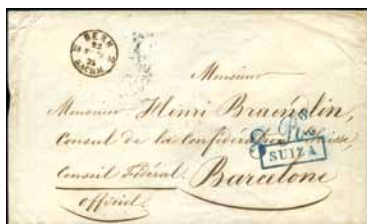 BERN
NACHM.
Monsieur
Monsieur Henri
Consul de la Confédération Suisse,
SUIZA
Conseil Fédéral
Barcelone
Officiel